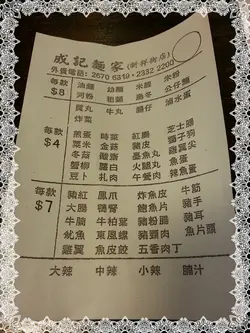 成記麵家(新祥街店)
外賣電話: 2670 6319·2332 2200
每款 $8
油麵 幼麵 米線 米粉
河粉 粗麵 烏冬 公仔麵
貢丸 牛丸 腸仔 滷水蛋
炸菜
每款 $4
煎蛋 時菜 紅腸 芝士腸
粟米 金菇 豬皮 獅子狗
冬菇 雞膇 墨魚丸 雞翼尖
蟹柳 蘿白 火腿丸 魚蛋
豆卜 扎肉 午餐肉 辣魚蛋
每款 $7
豬紅 鳳爪 炸魚皮 牛筋
大腸 鴨腎 鮑魚片 豬手
牛腩 牛柏葉 豬粉腸 豬耳
魷魚 東風螺 豬頸肉 魚片頭
雞翼 魚皮餃 五香肉丁
大辣 中辣 小辣 腩汁